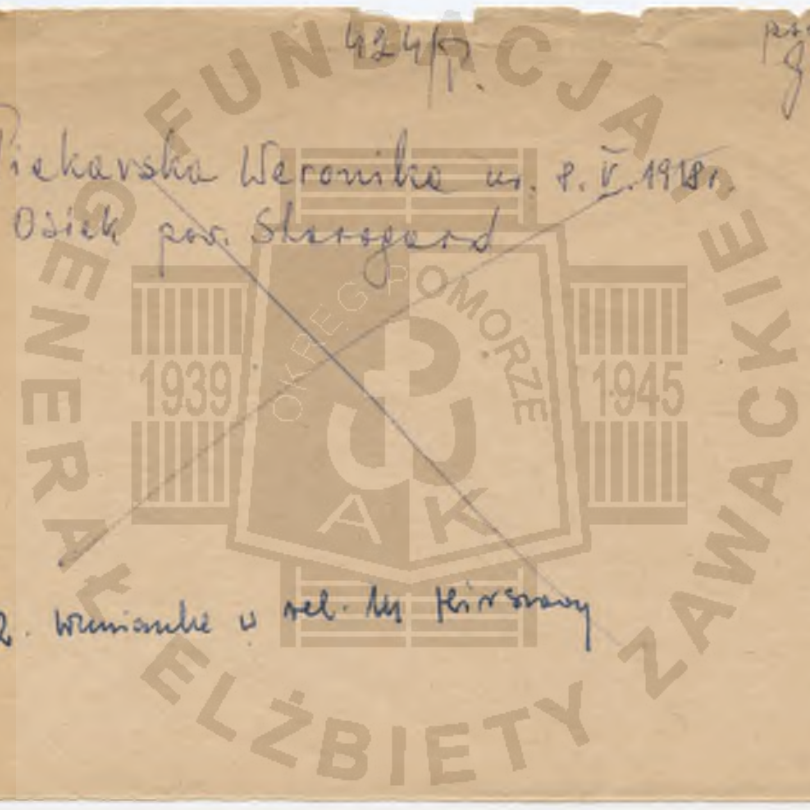 424/P.
Piekarska Weronika ur. 8.V.1918r.
Osiek pow. Starogard
wzmianka w rel. M Hirszowy
FUNDACJA GENERAŁ ELŻBIETY ZAWACKIEJ
OKRĘG POMORZE
1939 1945
AK